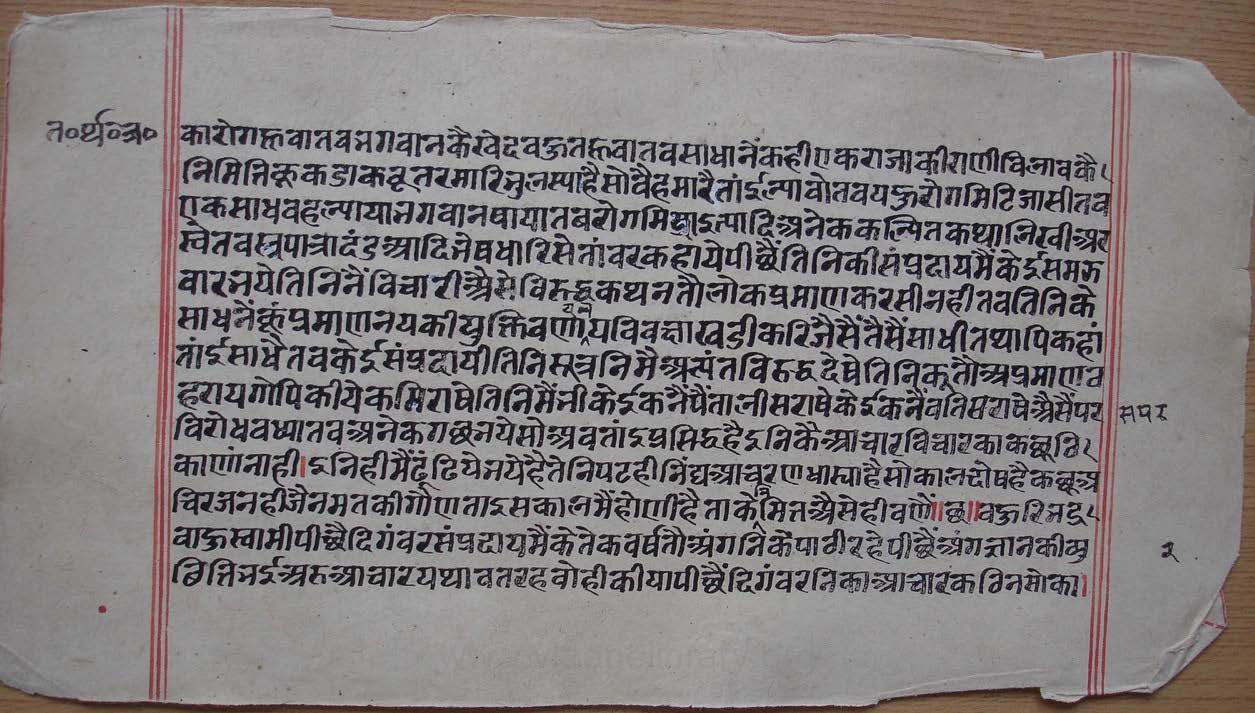 त॰र्थ॰ञ॰
कारोगहूवातबभगवानकैखेदबहुतहूवातबसाधानेंकहीएकराजाकीराणीविलावकै
निमित्तिकूकडाकबूतरमारिभुलस्याहैसोवैहमारैतांईल्यावोतबयहुरोगमिटिजासीतब
एकसाधवहल्यायाभगवानषायातबरोगमिट्याइत्यादिअनेककल्पितकथालिखीअर
स्वेतवस्त्रपात्रादंडआदिभेषधारिसेतांवरकहायेपीछैंतिनिकीसंप्रदायमैंकेईसमझ
वारभयेतिनिनैंविचारीअैसेविरुद्धकथनतौलोकप्रमाणकरसीनहीतबतिनिके
साधनैंकूंप्रमाणनयकीयुक्तिवणायनयविवक्षाखडीकरिजैसैंतैसैंसाधीतथापिकहां
तांईसाधैतबकेईसंप्रदायीतिनिसूत्रनिमैंअत्यंतविरुद्धदेषेतिनिकूतौअप्रमाणठ
हरायगोपिकीयेकमिराषेतिनिमैंभीकेईकनैंपैंतालीसराषेकेईकनैंवत्तिसराषेअैसैंपर
सपर
विरोधवध्यातबअनेकगछभयेसोअवतांईप्रसिद्धहैइनिकैआचारविचारकाकछूठि
काणांनाही।इनिहीमैंढूंढियेभयेहैतेनिपटहीनिंद्यआचरणधास्याहैसोकालदोषहैकछूअ
चिरजनहीजैनमतकीगौणताइसकालमैंहोणीहैताकेनिमित्तअैसेहीवणैं॥छ॥बहुरिभद्र
वाहुस्वामीपीछैदिगंबरसंप्रदायमैंकेतेकवर्षतौअंगनिकेपाठीरहेपीछैंअंगज्ञानकीव्यु
छित्तिभईअरुआचारयथावतरहवोहीकीयापीछैंदिगंबरनिकाआचारकठिनसोका।
२